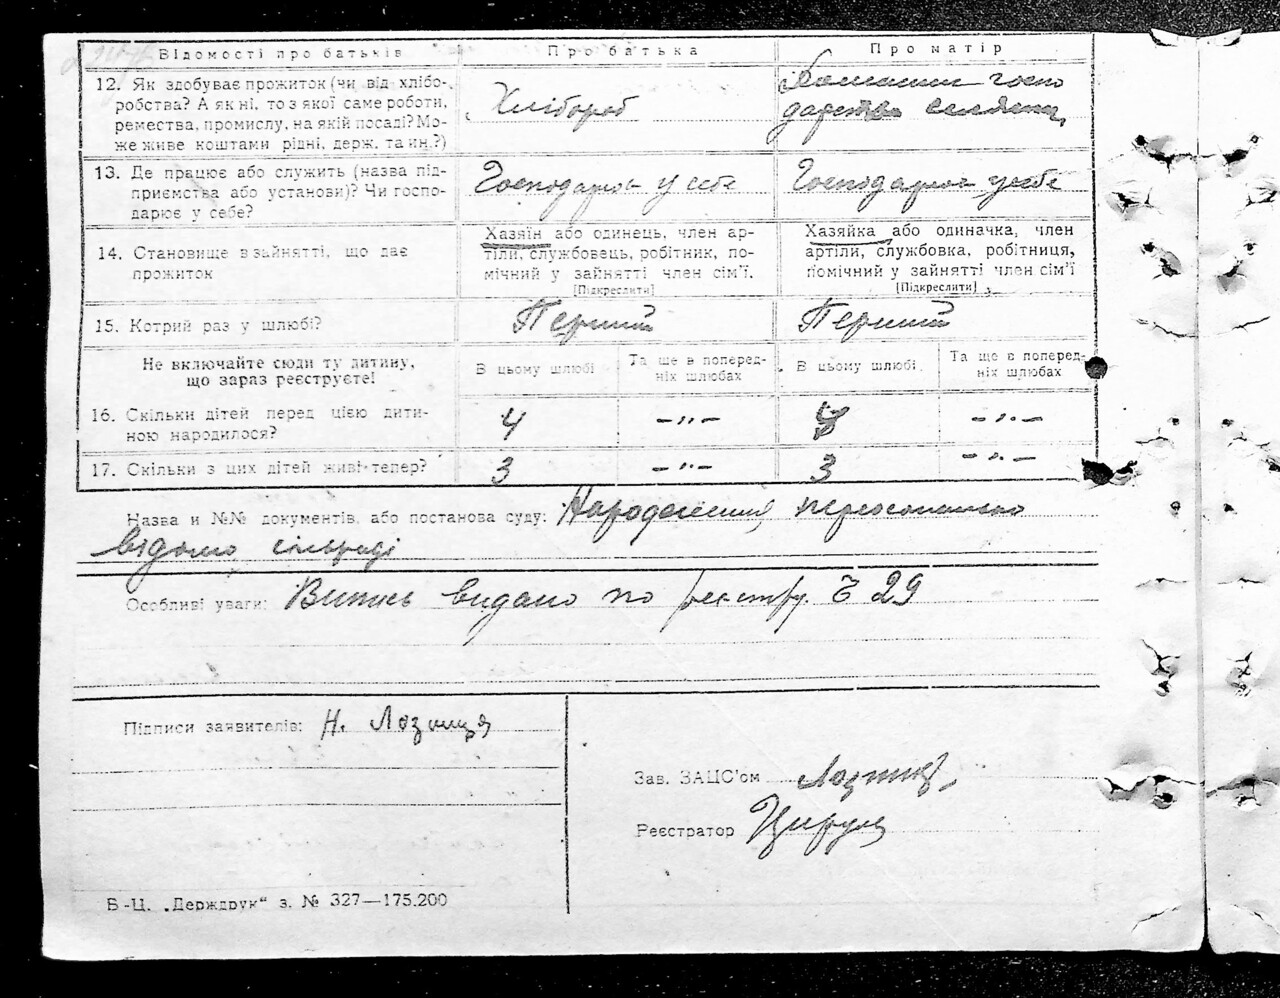 Відомості про батьків Про батька Про матір
12. Як здобуває прожиток (чи від хлібо-
робства? А як ні, то з якої саме роботи,
ремества, промислу, на якій посаді? Мо-
же живе коштами рідні, держ. та ин.?)
Хлібороб
Домашнє госпо
дарство селянки
13. Де працює або служить (назва під-
приємства або установи)? Чи госпо-
дарює у себе?
Господарює у себе
Господарює у себе
14. Становище в зайнятті, що дає
прожиток
Хазяїн або одинець, член ар-
тіли, службовець, робітник, по-
мічний у зайнятті член сім'ї.
[Підкреслити]
Хазяйка або одиначка, член
артіли, службовка, робітниця,
помічний у зайнятті член сім'ї
[Підкреслити]
15. Котрий раз у шлюбі?
Перший
Перший
Не включайте сюди ту дитину,
що зараз реєструєте!
В цьому шлюбі
Та ще в поперед-
ніх шлюбах
В цьому шлюбі
Та ще в поперед-
ніх шлюбах
16. Скільки дітей перед цією дити-
ною народилося?
4 –"– 4 –"–
17. Скільки з цих дітей живі тепер? 3 –"– 3 –"–
Назва и №№ документів або постанова суду: Народження персонально
відомо сільраді
Особливі уваги: Випись видано по реєстру Ч 29
Підписи заявителів: Н. Лозниця
Зав. ЗАЦС'ом
Реєстратор
Б-Ц. „Держдрук" з. № 327—175.200